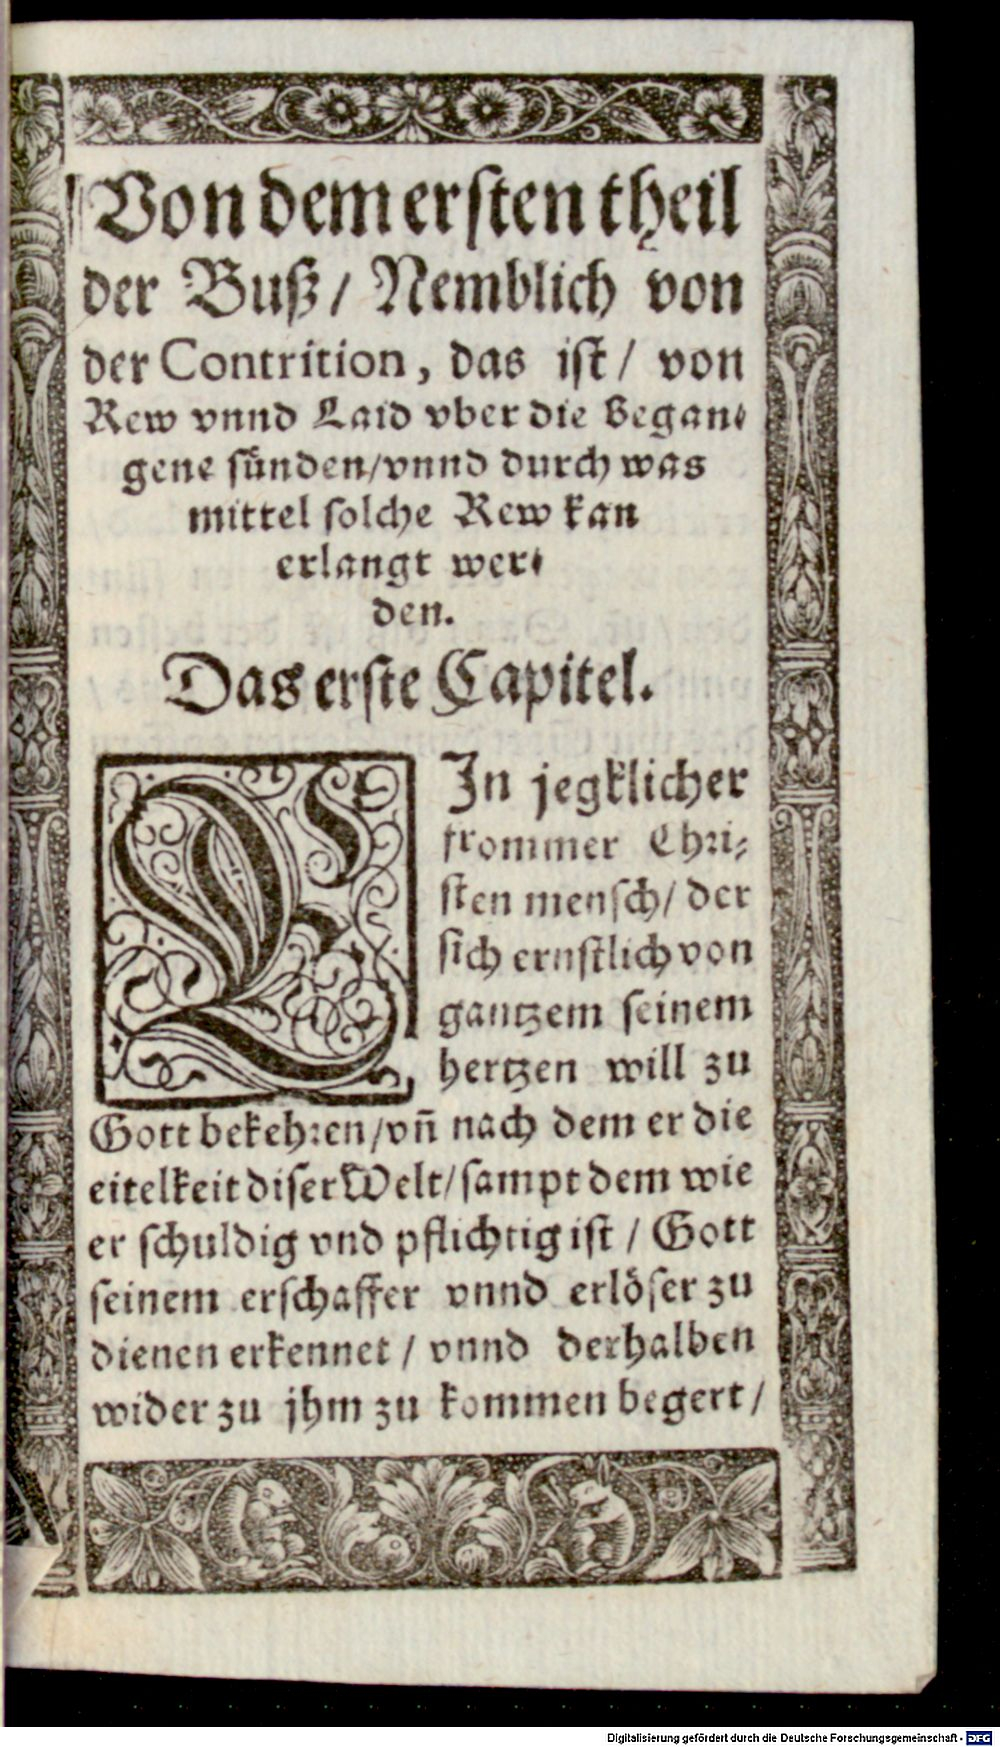 Von dem erſten theil
der Buſz/ Nemblich von
der Contrition, das iſt/ von
Rew vnnd Laid vber die Began⸗
gene ſünden/vnnd durch was
mittel ſolche Rew kan
erlangt wer⸗
den.
Das erſte Capitel.
EJn jegklicher
frommer Chri⸗
ſten menſch/ der
ſich ernſtlich von
gantzem ſeinem
hertzen will zu
Gott bekehren/vñ nach dem er die
eitelkeit diſer Welt/ſampt dem wie
er ſchuldig vnd pflichtig iſt / Gott
ſeinem erſchaffer vnnd erlöſer zu
dienen erkennet / vnnd derhalben
wider zu jhm zu kommen begert /
Digitalisierung gefördert durch die Deutsche Forschungsgemeinschaft - DFG